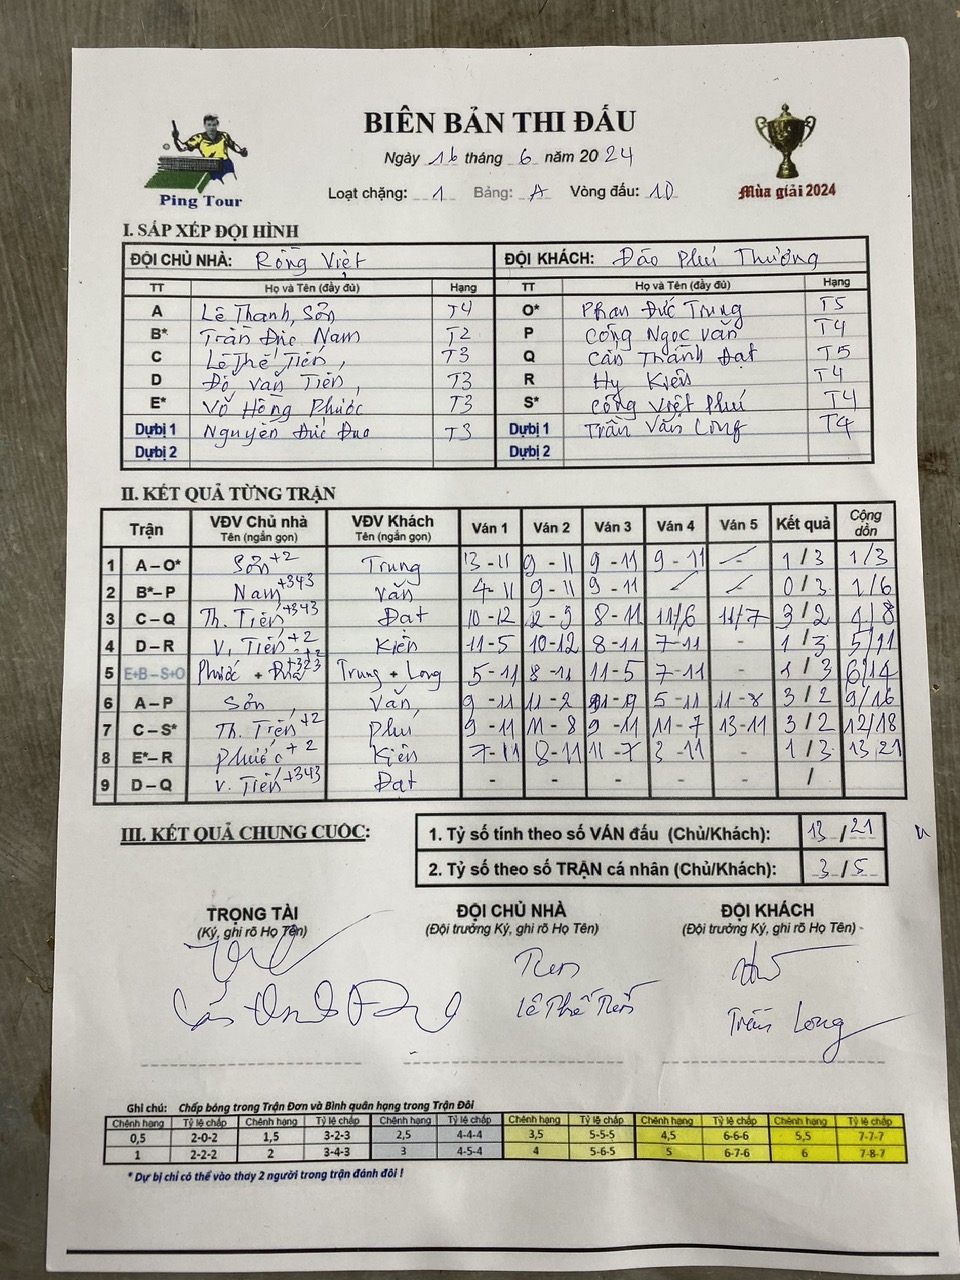 BIÊN BẢN THI ĐẤU
Ngày 16 tháng 6 năm 2024
Ping Tour
Loạt chặng: 1 Bảng: A Vòng đấu: 10
Mùa giải 2024
I. SẮP XẾP ĐỘI HÌNH
ĐỘI CHỦ NHÀ: Rồng Việt ĐỘI KHÁCH: Đào Phú Thượng
TT Họ và Tên (đầy đủ) Hạng TT Họ và Tên (đầy đủ) Hạng
A Lê Thanh Sơn T4 O* Phan Đức Trung T5
B* Trần Đức Nam T2 P Công Ngọc Văn T4
C Lê Thế Tiến T3 Q Cấn Thành Đạt T5
D Đỗ Văn Tiến T3 R Hy Kiên T4
E* Võ Hồng Phước T3 S* Công Việt Phú T4
Dự bị 1 Nguyễn Đức Đạo T3 Dự bị 1 Trần Văn Long T4
Dự bị 2 Dự bị 2
II. KẾT QUẢ TỪNG TRẬN
Trận VĐV Chủ nhà Tên (ngắn gọn) VĐV Khách Tên (ngắn gọn) Ván 1 Ván 2 Ván 3 Ván 4 Ván 5 Kết quả Cộng dồn
1 A – O* Sơn +2 Trung 13 - 11 9 - 11 9 - 11 9 - 11 - 1 / 3 1/3
2 B* – P Nam +343 Văn 4 - 11 9 - 11 9 - 11 - - 0 / 3 1/6
3 C – Q Th. Tiến +343 Đạt 10 - 12 - 9 8 - 11 11/6 11/7 3 / 2 4/8
4 D – R V. Tiến +2 Kiên 11 - 5 10 - 12 8 - 11 7 - 11 - 1 / 3 5/11
5 E+B – S+O Phước + +323 Trung + Long 5 - 11 8 - 11 11 - 5 7 - 11 - 1 / 3 6/14
6 A – P Sơn Văn 9 - 11 11 - 2 - 9 5 - 11 11 - 8 3 / 2 9/16
7 C – S* Th. Tiến +2 Phú 9 - 11 11 - 8 9 - 11 11 - 7 13 - 11 3 / 2 12/18
8 E* – R Phước +2 Kiên 7 - 11 8 - 11 11 - 7 3 - 11 - 1 / 3 13/21
9 D – Q V. Tiến +343 Đạt - - - - - /
III. KẾT QUẢ CHUNG CUỘC:
1. Tỷ số tính theo số VÁN đấu (Chủ/Khách): 13 / 21
2. Tỷ số theo số TRẬN cá nhân (Chủ/Khách): 3 / 5
TRỌNG TÀI ĐỘI CHỦ NHÀ ĐỘI KHÁCH
(Ký, ghi rõ Họ Tên) (Đội trưởng Ký, ghi rõ Họ Tên) (Đội trưởng Ký, ghi rõ Họ Tên)
Lê Thế Tiến Trần Long
Ghi chú: Chấp bóng trong Trận Đơn và Bình quân hạng trong Trận Đôi
Chênh hạng Tỷ lệ chấp Chênh hạng Tỷ lệ chấp Chênh hạng Tỷ lệ chấp Chênh hạng Tỷ lệ chấp Chênh hạng Tỷ lệ chấp Chênh hạng Tỷ lệ chấp
0,5 2-0-2 1,5 3-2-3 2,5 4-4-4 3,5 5-5-5 4,5 6-6-6 5,5 7-7-7
1 2-2-2 2 3-4-3 3 4-5-4 4 5-6-5 5 6-7-6 6 7-8-7
* Dự bị chỉ có thể vào thay 2 người trong trận đánh đôi !